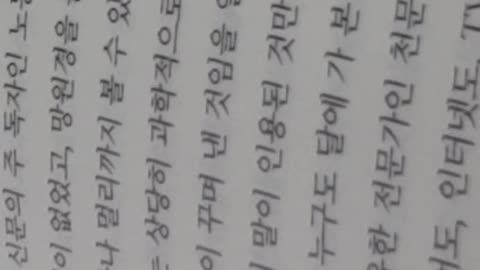 신문의 주 독자인
없었고, 망원경을
멀리까지 볼 수 있
상당히 과학적으로
이 꾸며 낸 것임을
말이 인용된 것만
누구도 달에 가 본
한 전문가인 천문
도, 인터넷도, TV